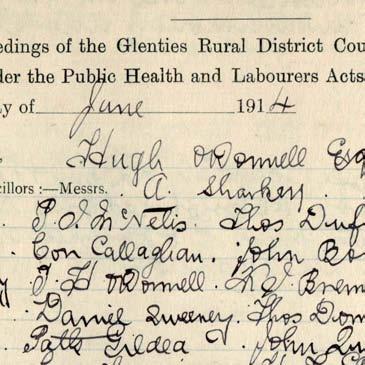 edings of the Glenties Rural District Cou
der the Public Health and Labourers Acts
y of June 1914
Hugh O'Donnell Esq
cillors :—Messrs. A. Sharkey
P. J. McNelis. Thos Duf
Con Callaghan. John Bo
J. H O'Donnell.
Daniel Sweeney. Thos Don
Patk Gildea John